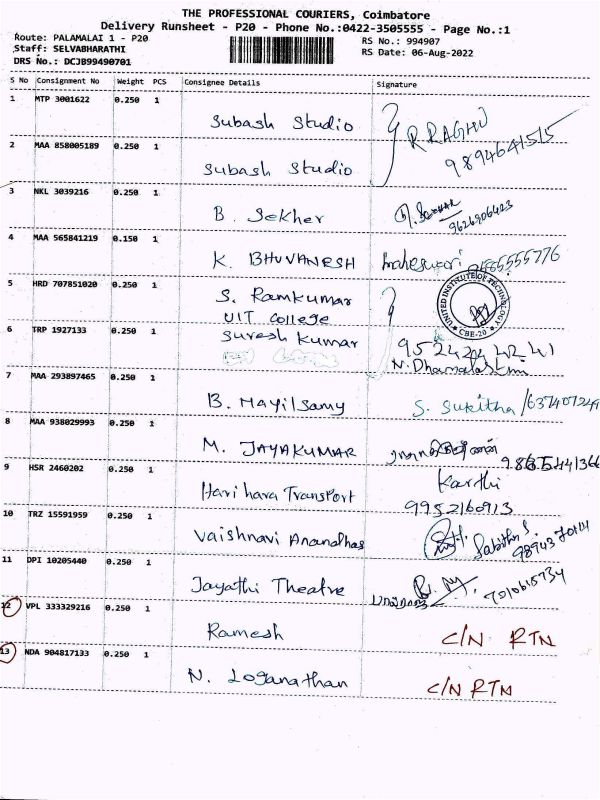 THE PROFESSIONAL COURIERS, Coimbatore
Delivery Runsheet - P20 - Phone No.:0422-3505555 - Page No.:1
Route: PALAMALAI 1 - P20
RS No.: 994907
Staff: SELVABHARATHI
RS Date: 06-Aug-2022
DRS No.: DCJB99490701
S No Consignment No Weight PCS Consignee Details Signature
1 MTP 3001622 0.250 1
Subash Studio R RAGHU
9894641515
2 MAA 858005189 0.250 1
Subash Studio
3 NKL 3039216 0.250 1
B. Sekher
9626906423
4 MAA 565841219 0.150 1
K. BHUVANESH maheswari
5 HRD 707851020 0.250 1
S. Ramkumar
UIT College
UNITED INSTITUTE OF TECHNOLOGY
CBE-20
6 TRP 1927133 0.250 1
Suresh Kumar
N.
7 MAA 293897465 0.250 1
B. Mayilsamy S. Sukitha
8 MAA 938029993 0.250 1
M. JAYAKUMAR
9 HSR 2460202 0.250 1
Karthi
Hari hara Transport
9952160913
10 TRZ 15591959 0.250 1
Vaishnavi Anandhas Sabitha S.
11 DPI 10205440 0.250 1
Jayathi Theatre 7010615734
12 VPL 333329216 0.250 1
Ramesh C/N RTN
13 NDA 904817133 0.250 1
N. Loganathan C/N RTN